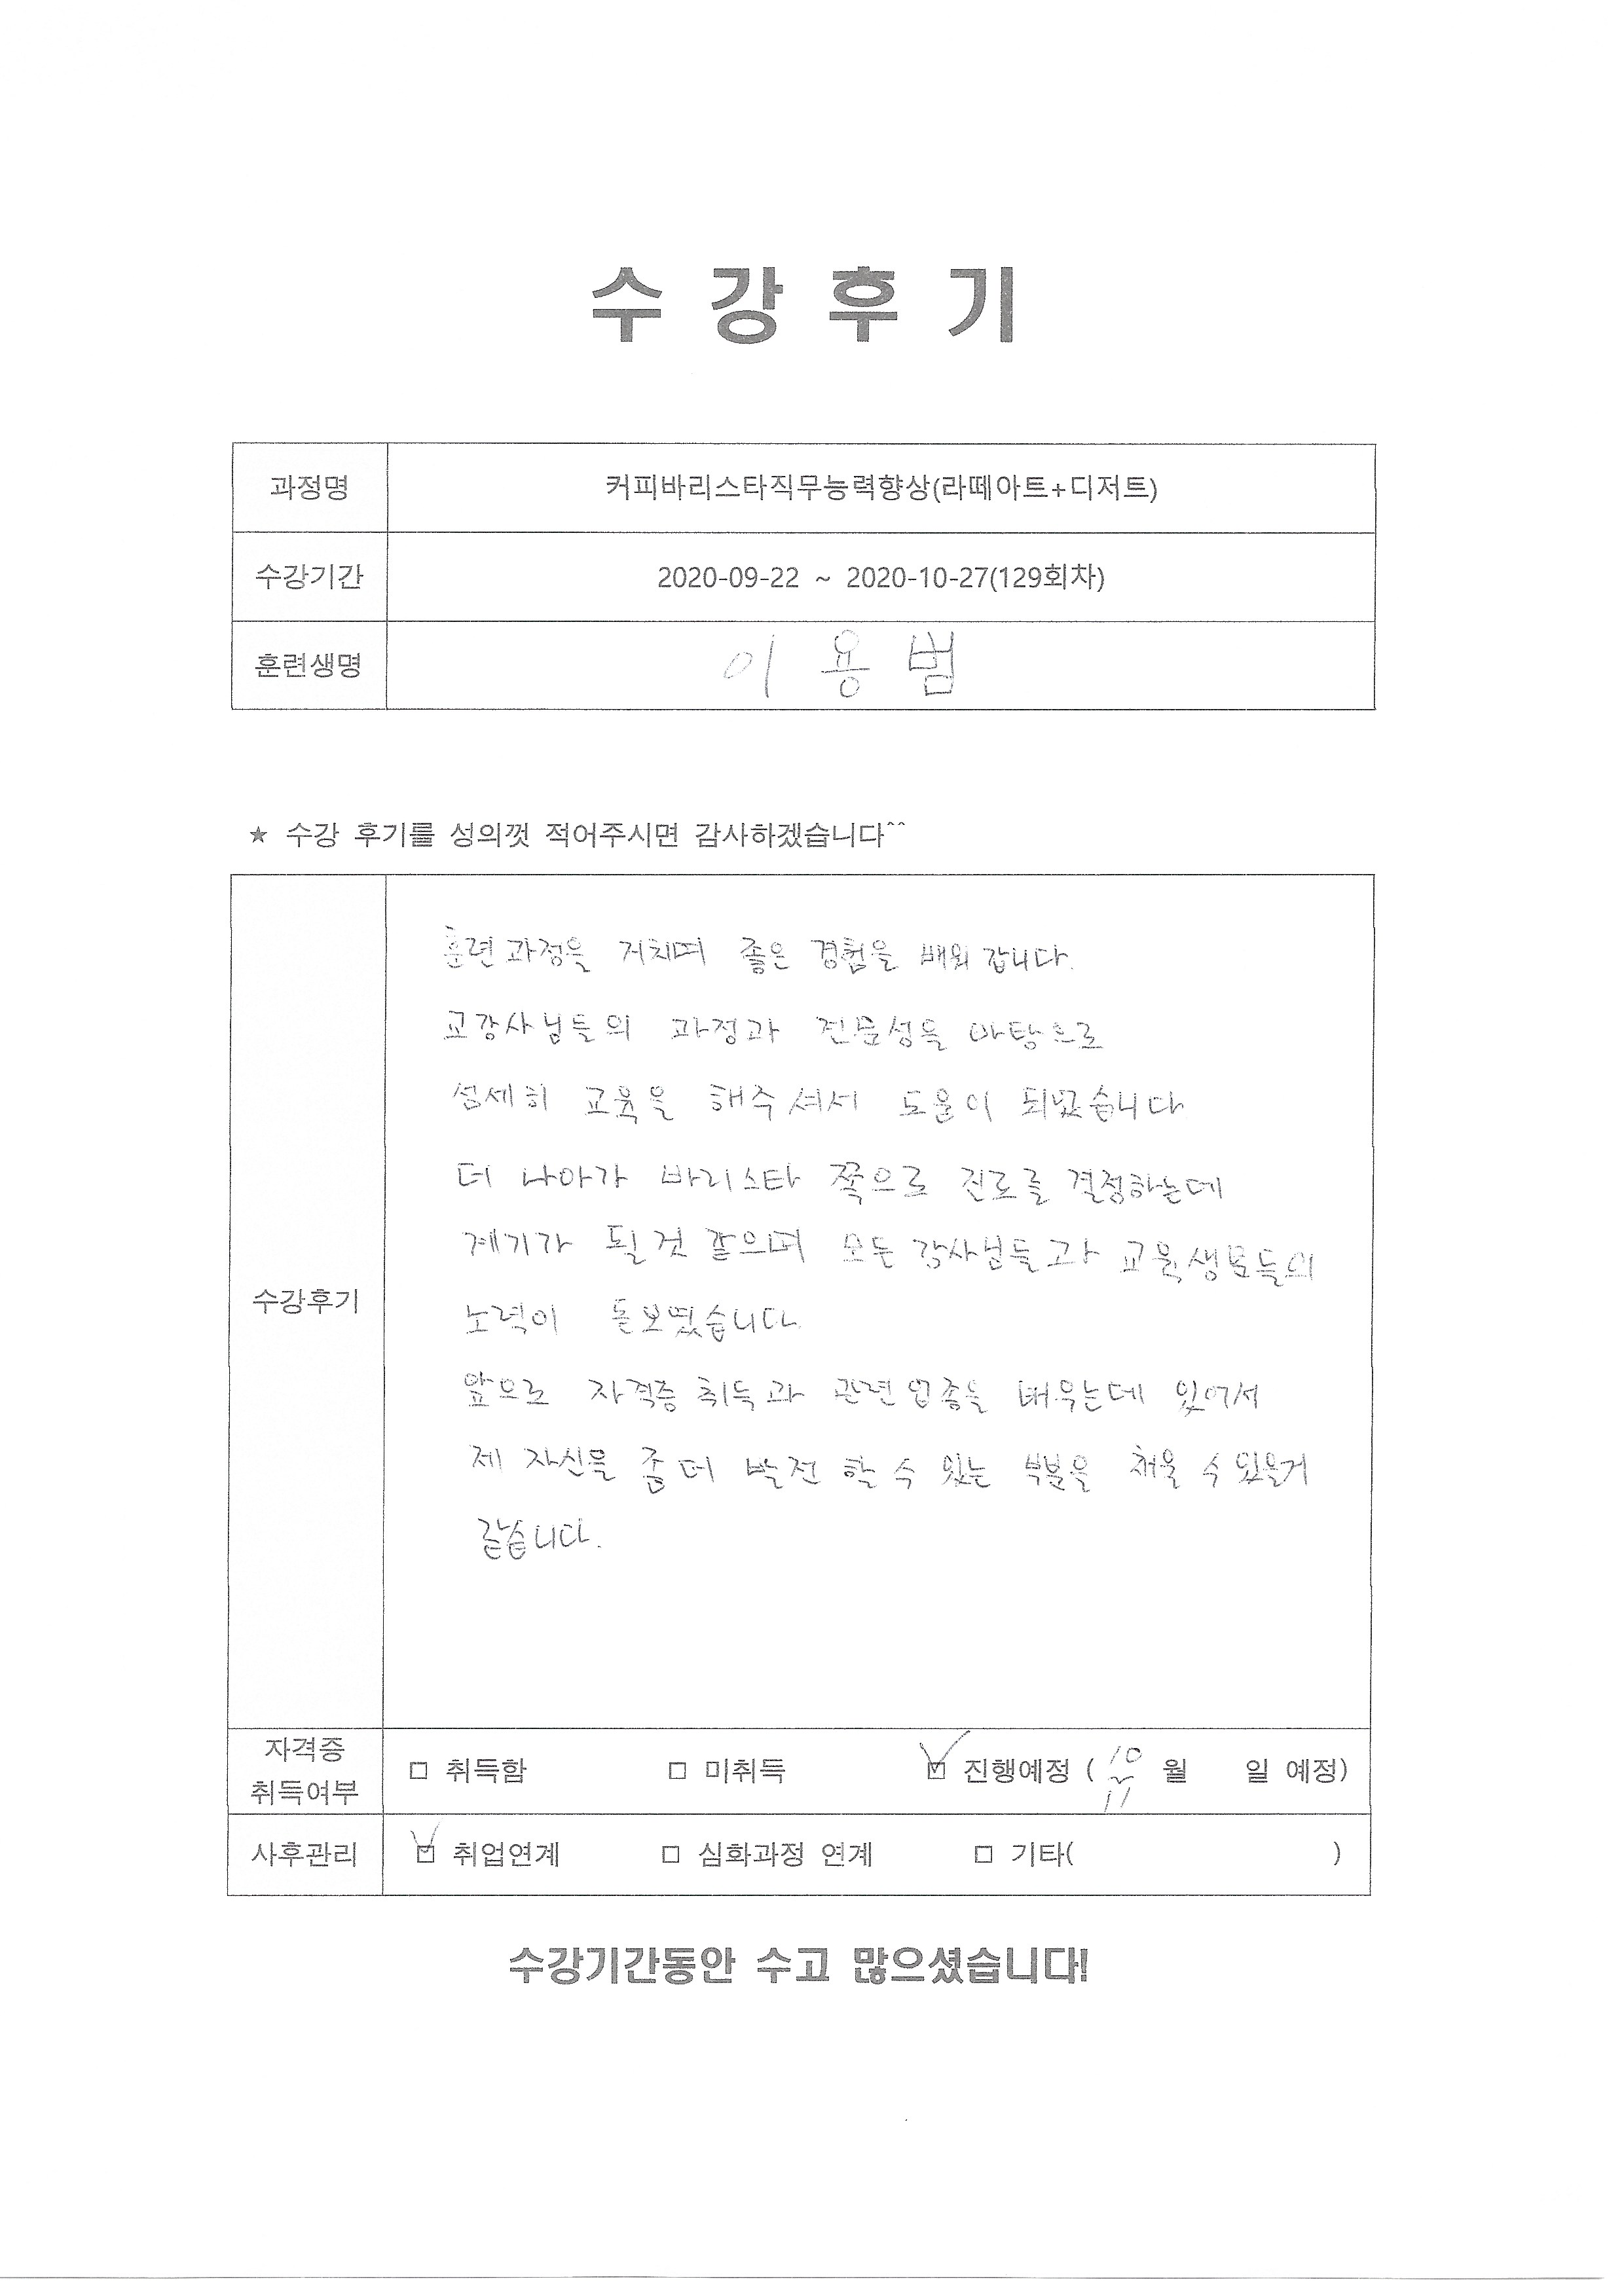 수 강 후 기
과정명 커피바리스타직무능력향상(라떼아트+디저트)
수강기간 2020-09-22 ~ 2020-10-27(129회차)
훈련생명 이 용 범
★ 수강 후기를 성의껏 적어주시면 감사하겠습니다^^
수강후기
훈련과정을 거치며 좋은 경험을 배워 갑니다.
교강사님들의 과정과 전문성을 바탕으로
섬세히 교육을 해주셔서 도움이 되었습니다
더 나아가 바리스타 쪽으로 진로를 결정하는데
계기가 될것 같으며 모든 강사님들과 교육생분들의
노력이 돋보였습니다.
앞으로 자격증 취득과 관련업종을 배우는데 있어서
제 자신을 좀더 발전 할 수 있는 부분을 채울 수 있을거
같습니다.
자격증 취득여부 □ 취득함 □ 미취득 ☑ 진행예정 ( 10~11 월 일 예정)
사후관리 ☑ 취업연계 □ 심화과정 연계 □ 기타( )
수강기간동안 수고 많으셨습니다!